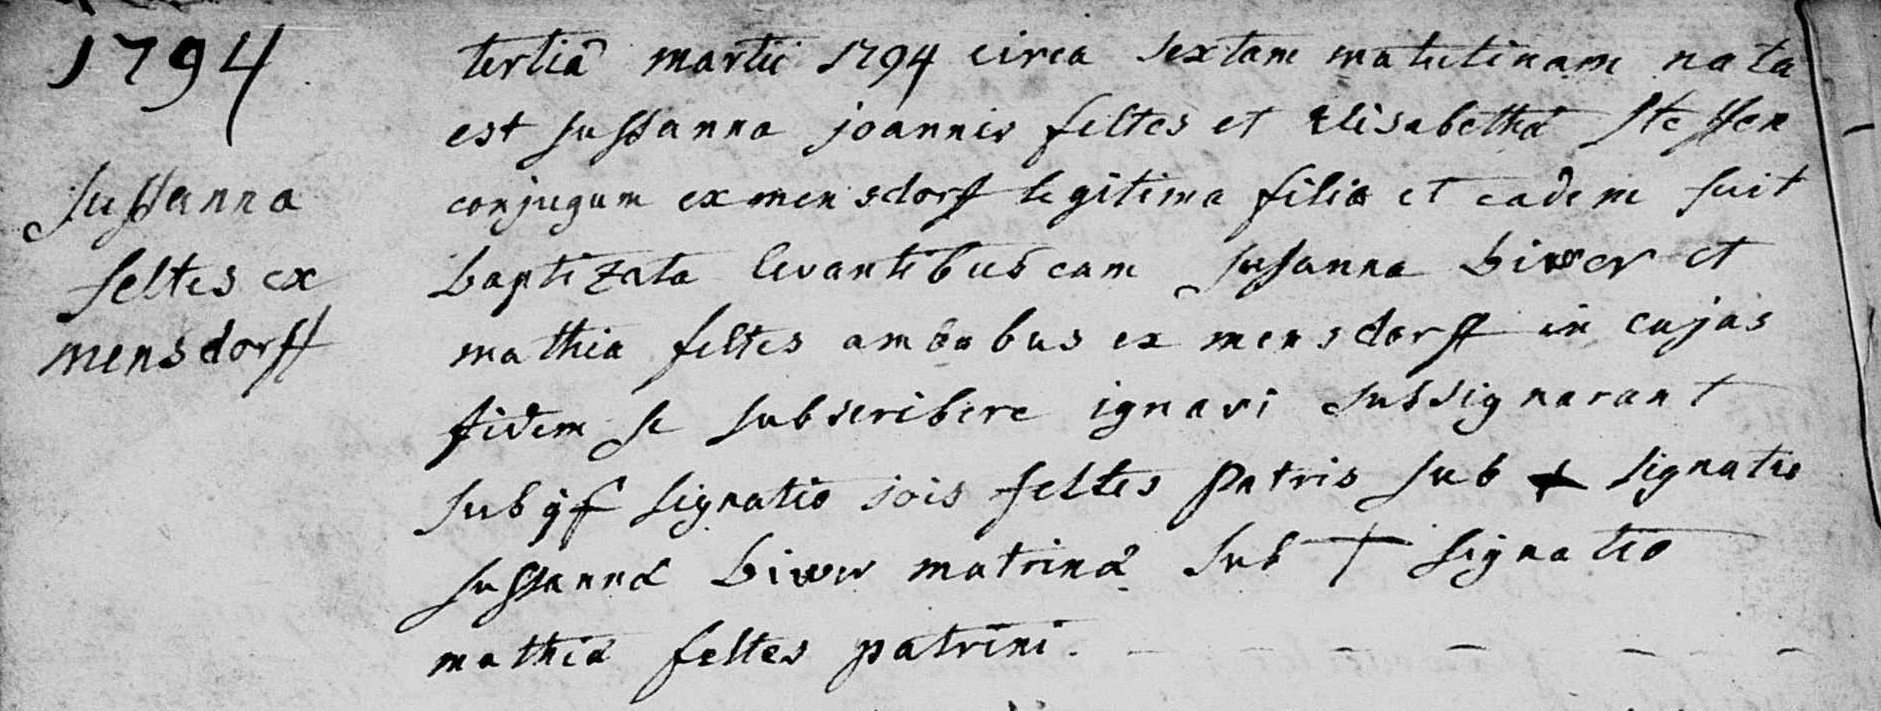 1794
Sussanna
feltes ex
mensdorff
tertiâ martii 1794 circa sextam matutinam nata
est sussanna joannis feltes et Elisabethæ Steffen
conjugum ex mensdorff legitima filia et eadem fuit
baptizata levantibus eam susanna biwer et
mathia feltes ambobus ex mensdorff in cujas
fidem se subscribere ignari subsignarant
sub signatio jois feltes patris sub + signatio
sussannæ biwer matrinæ sub + signatio
mathiæ feltes patrini. - - - - - -